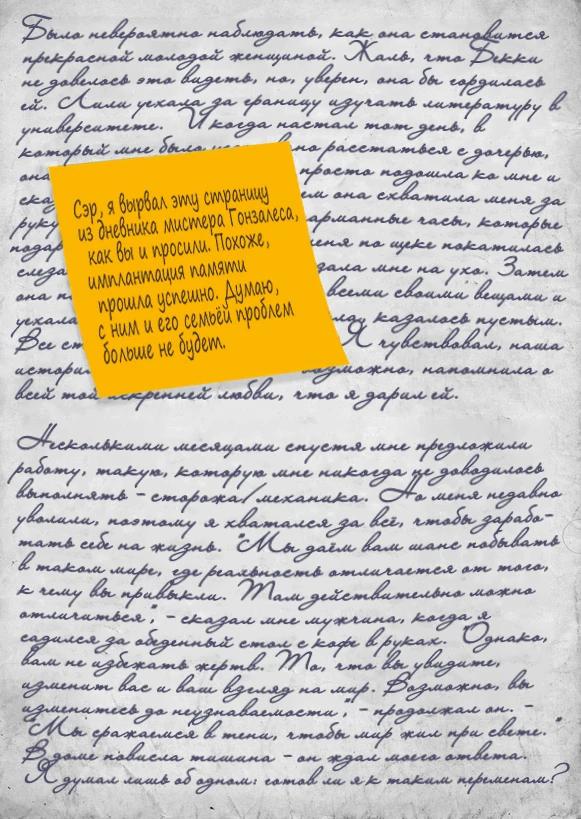 Было невероятно наблюдать, как она становится
прекрасной молодой женщиной. Жаль, что Бекки
не довелось это видеть, но, уверен, она бы гордилась
ей. Лили уехала за границу изучать литературу в
университете. И когда настал тот день, в
который мне было но расстаться с дочерью,
она просто подошла ко мне и
ска ем она схватила меня за
руку арманные часы, которые
подар еня по щеке покатилась
слеза дала мне на ухо. Затем
она п всеми своими вещами и
уехала казалось пустым.
Все ст Я чувствовал, наша
истори возможно, напомнила о
всей той искренней любви, что я дарил ей.
Сэр, я вырвал эту страницу
из дневника мистера Гонзалеса,
как вы и просили. Похоже,
имплантация памяти
прошла успешно. Думаю,
с ним и его семьёй проблем
больше не будет.
Несколькими месяцами спустя мне предложили
работу, такую, которую мне никогда не доводилось
выполнять – сторожа/механика. Но меня недавно
уволили, поэтому я хватался за всё, чтобы зарабо-
тать себе на жизнь. "Мы даём вам шанс побывать
в таком мире, где реальность отличается от того,
к чему вы привыкли. Там действительно можно
отличиться", – сказал мне мужчина, когда я
садился за обеденный стол с кофе в руках. "Однако,
вам не избежать жертв. То, что вы увидите,
изменит вас и ваш взгляд на мир. Возможно, вы
изменитесь до неузнаваемости", – продолжал он. –
"Мы сражаемся в тени, чтобы мир жил при свете."
В доме повисла тишина – он ждал моего ответа.
Я думал лишь об одном: готов ли я к таким переменам?